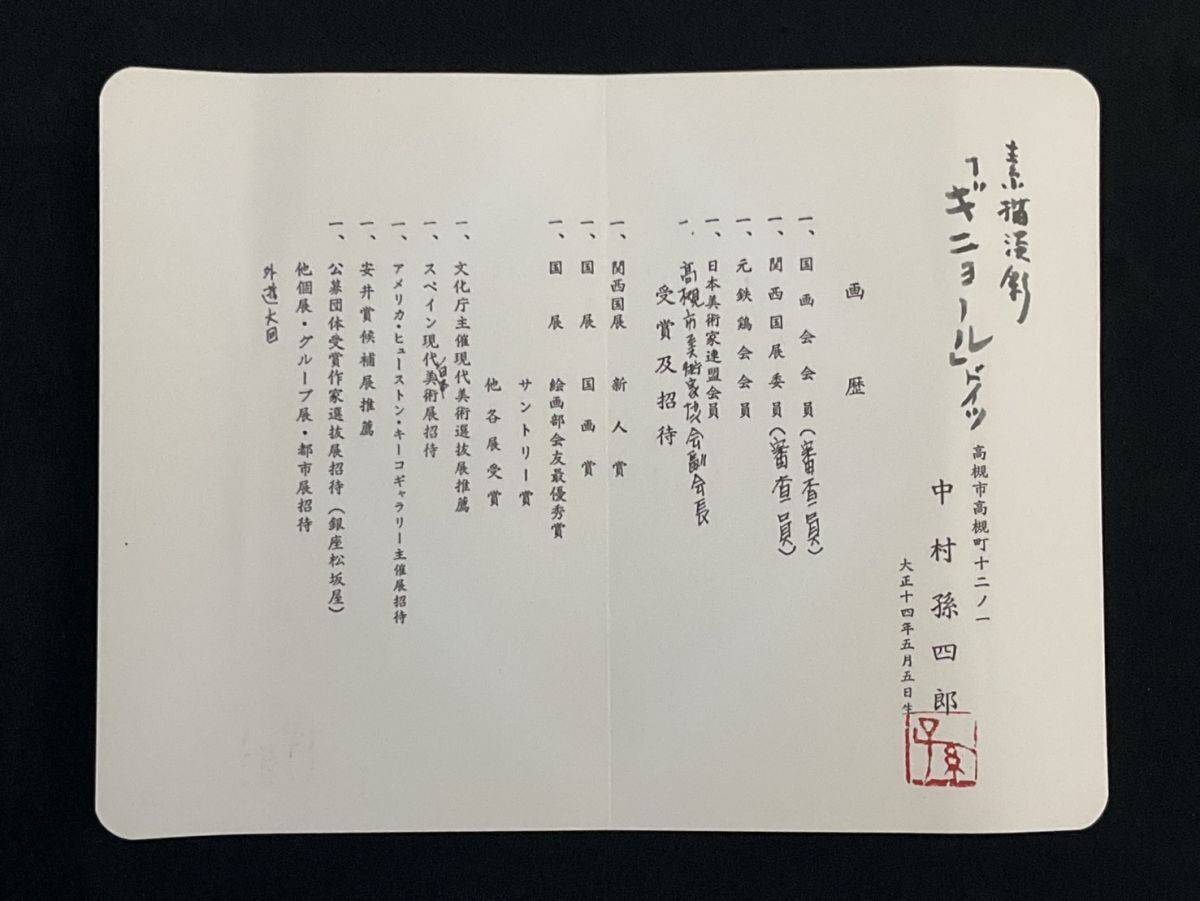 素描淡彩
「ギニョール」ドイツ
高槻市高槻町十二ノ一
中村孫四郎
大正十四年五月五日生
孫
画歴
一、国画会会員(審査員)
一、関西国展委員(審査員)
一、元鉄鶏会会員
一、日本美術家連盟会員
一、高槻市美術家協会副会長
受賞及招待
一、関西国展 新人賞
一、国展 国画賞
一、国展 絵画部会友最優秀賞
サントリー賞
他各展受賞
一、文化庁主催現代美術選抜展推薦
一、スペイン現代日本美術展招待
一、アメリカ・ヒューストン・キーコギャラリー主催展招待
一、安井賞候補展推薦
一、公募団体受賞作家選抜展招待(銀座松坂屋)
他個展・グループ展・都市展招待
外遊六回